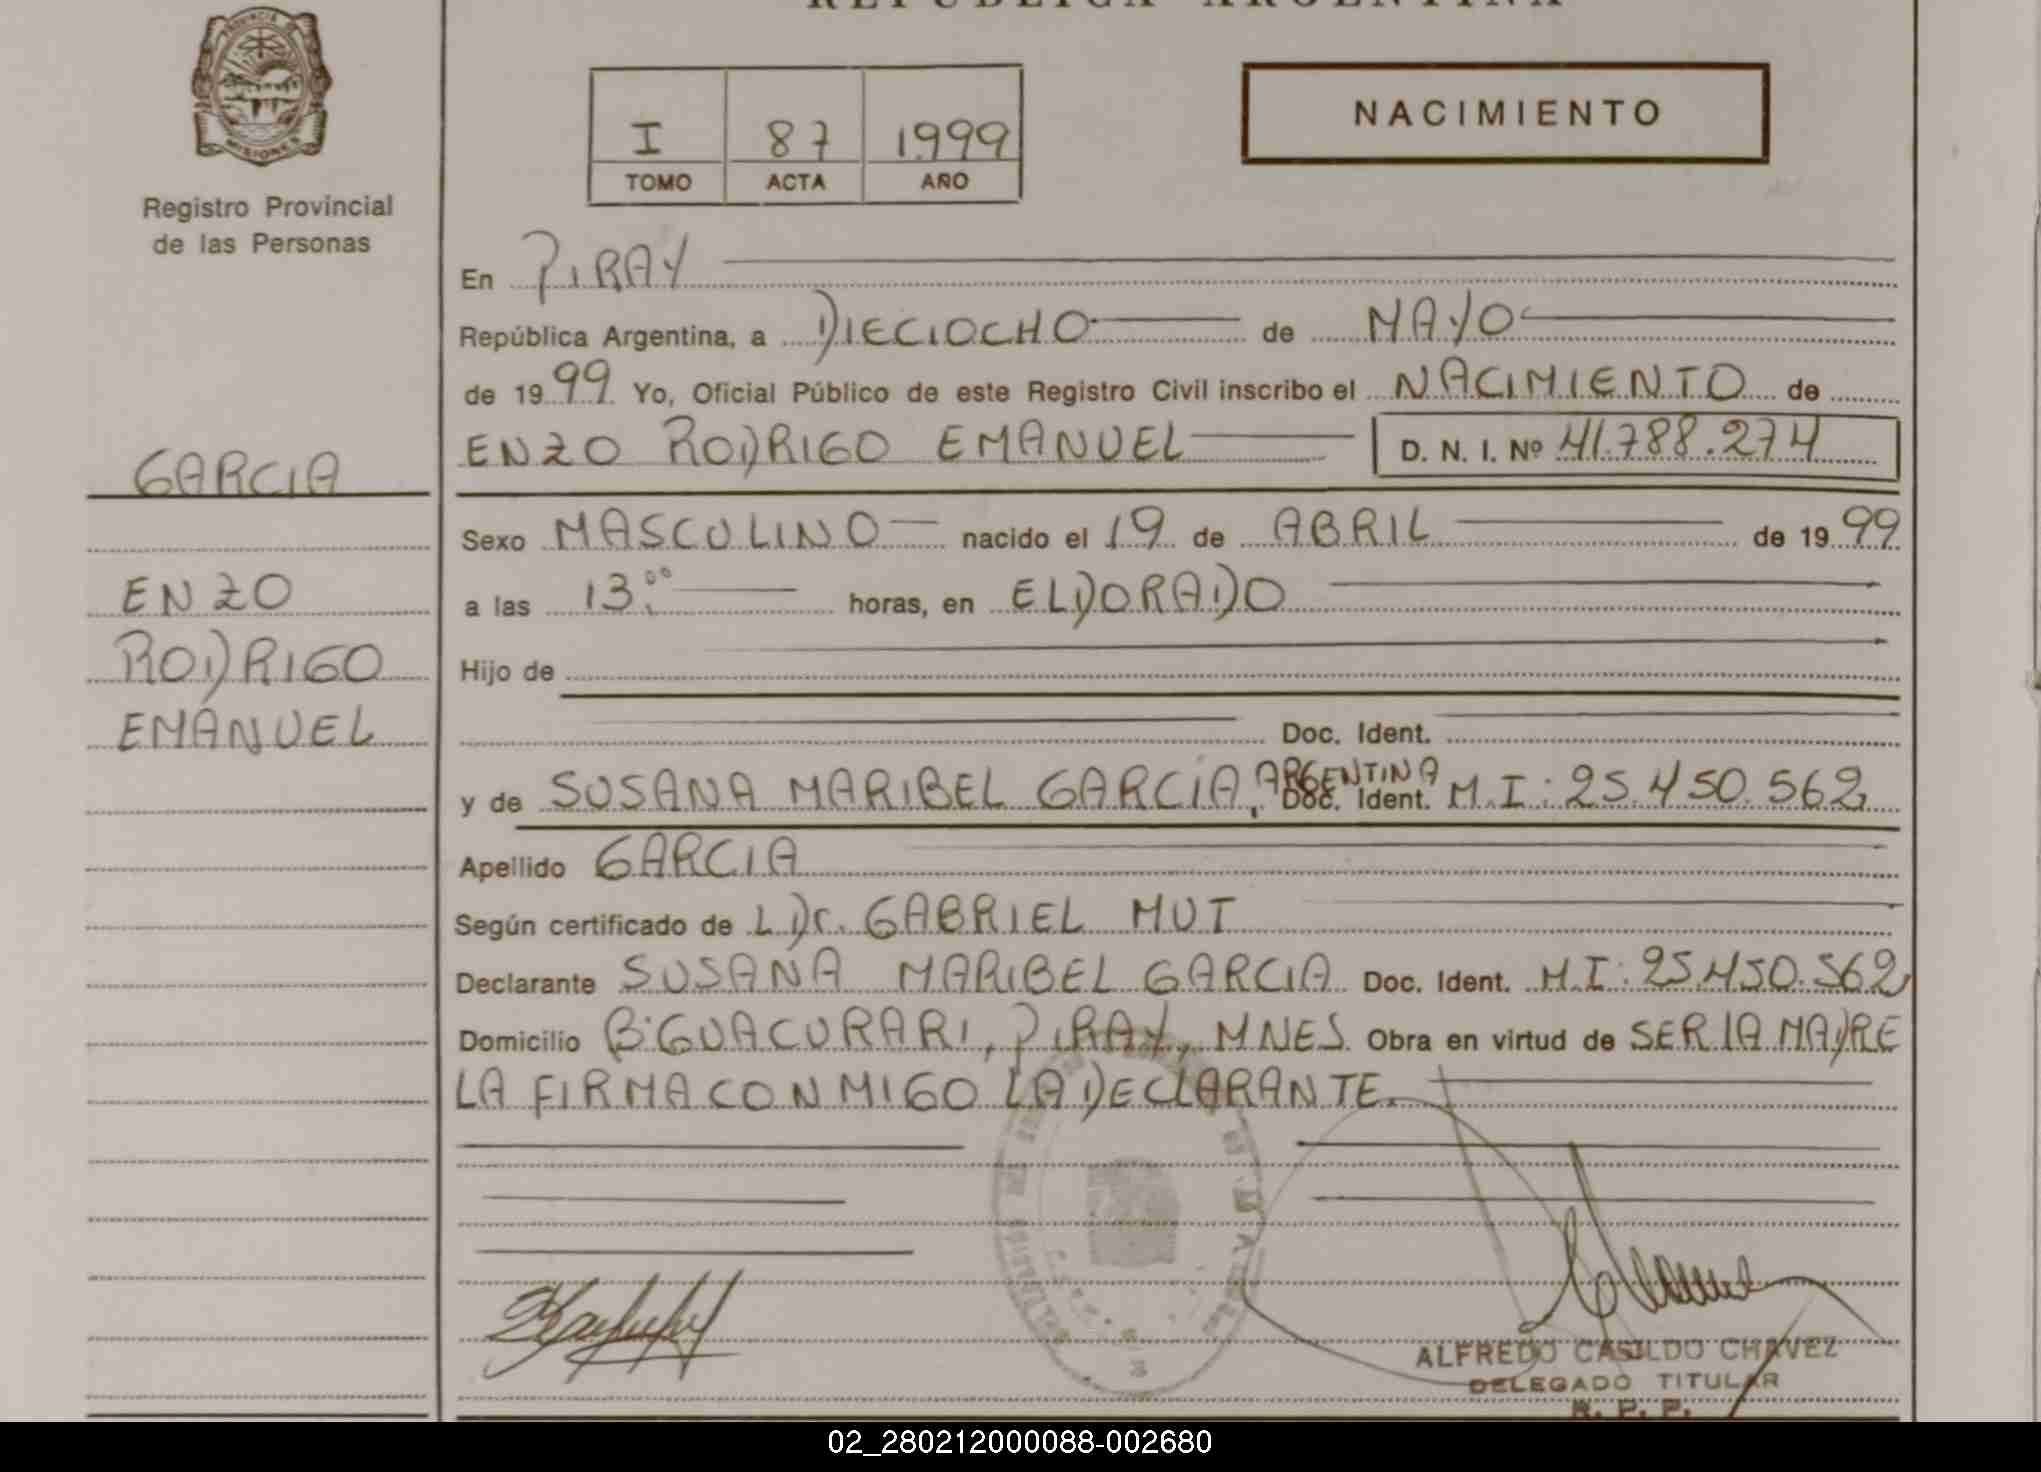 REPUBLICA ARGENTINA
PROVINCIA DE
MISIONES
Registro Provincial
de las Personas
I 87 1.999
TOMO ACTA AÑO
NACIMIENTO
En PIRAY
República Argentina, a DIECIOCHO de MAYO
de 1999 Yo, Oficial Público de este Registro Civil inscribo el NACIMIENTO de
ENZO RODRIGO EMANUEL D. N. I. Nº 41.788.274
GARCIA
ENZO
RODRIGO
EMANUEL
Sexo MASCULINO nacido el 19 de ABRIL de 1999
a las 13:00 horas, en ELDORADO
Hijo de
Doc. Ident.
y de SUSANA MARIBEL GARCIA, ARGENTINA Doc. Ident. M.I: 25.450.562,
Apellido GARCIA
Según certificado de L Dr. GABRIEL MUT
Declarante SUSANA MARIBEL GARCIA Doc. Ident. M.I: 25.450.562,
Domicilio Bº GUACURARI, PIRAY, MNES Obra en virtud de SER LA MADRE
LA FIRMA CONMIGO LA DECLARANTE.
ALFREDO CASILDO CHAVEZ
DELEGADO TITULAR
R. P. P.
02_280212000088-002680